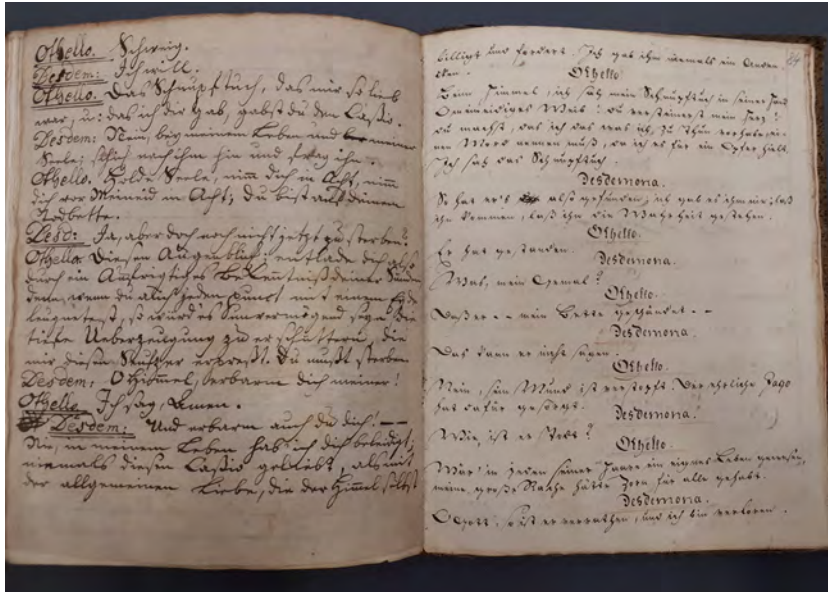 Othello. Schweig.
Desdem: Ich will.
Othello. Das Schnupftuch, das mir so lieb
war, u: das ich dir gab, gabst du dem Cassio.
Desdem: Nein, bey meinem Leben und meiner
Seele; schick nach ihm hin und frag ihn.
Othello. Holde Seele, nimm dich in Acht, nimm
dich vor Meineid in Acht; du bist auf deinem
Todbette.
Desd: Ja, aber doch noch nicht jetzt zu sterben?
Othello. Diesen Augenblick; entlade dich also
durch ein Aufrigtiges Bekenntniß deiner Sünden
denn, wenn du auch jeden punct mit einem Eyde
leugnetest, so würd es unvermögend seyn die
tiefe Ueberzeugung zu erschüttern, die
mir diesen Seufzer erpreßt. Du mußt sterben
Desdem: O Himmel, erbarm dich meiner!
Othello Ich sag, Amen.
Desdem: Und erbarm auch du dich! —
Nie, in meinem Leben hab ich dich beleidigt;
niemals diesen Cassio geliebt, als mit
der allgemeinen Liebe, die der Himmel selbst
84
billigt und fordert. Ich gab ihm niemals ein Anden
cken.
Othello
Beim Himmel, ich sah mein Schnupftuch in seiner Hand
O meineidiges Weib! du versteinerst mein Herz!
du machst, das ich das was ich zu thun vorhabe, ei-
nen Mord nennen muß, da ich es für ein Opfer hielt.
Ich sah das Schnupftuch.
Desdemona.
So hat er's also gefunden; ich gab es ihm nie; laß
ihn kommen, laß ihn die Wahrheit gestehen.
Othello.
Er hat gestanden.
Desdemona.
Was, mein Gemal?
Othello.
Daß er - - mein Bette geschändet. -
Desdemona.
Das kann er nicht sagen.
Othello.
Nein, sein Mund ist verstopft. Der ehrliche Jago
hat dafür gesorgt.
Desdemona.
Wie, ist er todt?
Othello.
Wär' in jedem seiner Haare ein eignes Leben gewesen,
meine große Rache hätte Zorn für alle gehabt.
Desdemona.
O Gott, so ist er verrathen, und ich bin verloren.